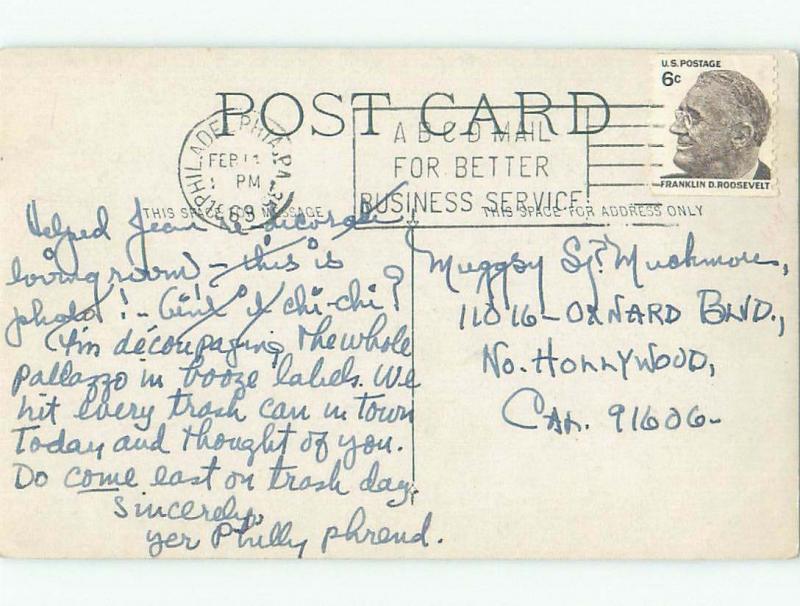 U.S. POSTAGE
6c
FRANKLIN D. ROOSEVELT
POST CARD
PHILADELPHIA, PA.
FEB 11
PM
1969
A B C D MAIL
FOR BETTER
BUSINESS SERVICE!
THIS SPACE FOR MESSAGE
THIS SPACE FOR ADDRESS ONLY
Helped Jean re decorate
living room – this is
photo! – Ain't it chi-chi?
I'm decoupaging the whole
pallazzo in booze labels. We
hit every trash can in town
Today and thought of you.
Do come east on trash day.
Sincerely,
yer Philly phrend.
Muggsy St. Muchmore,
11016 – OXNARD BLVD.,
No. HOLLYWOOD,
CAL. 91606 –